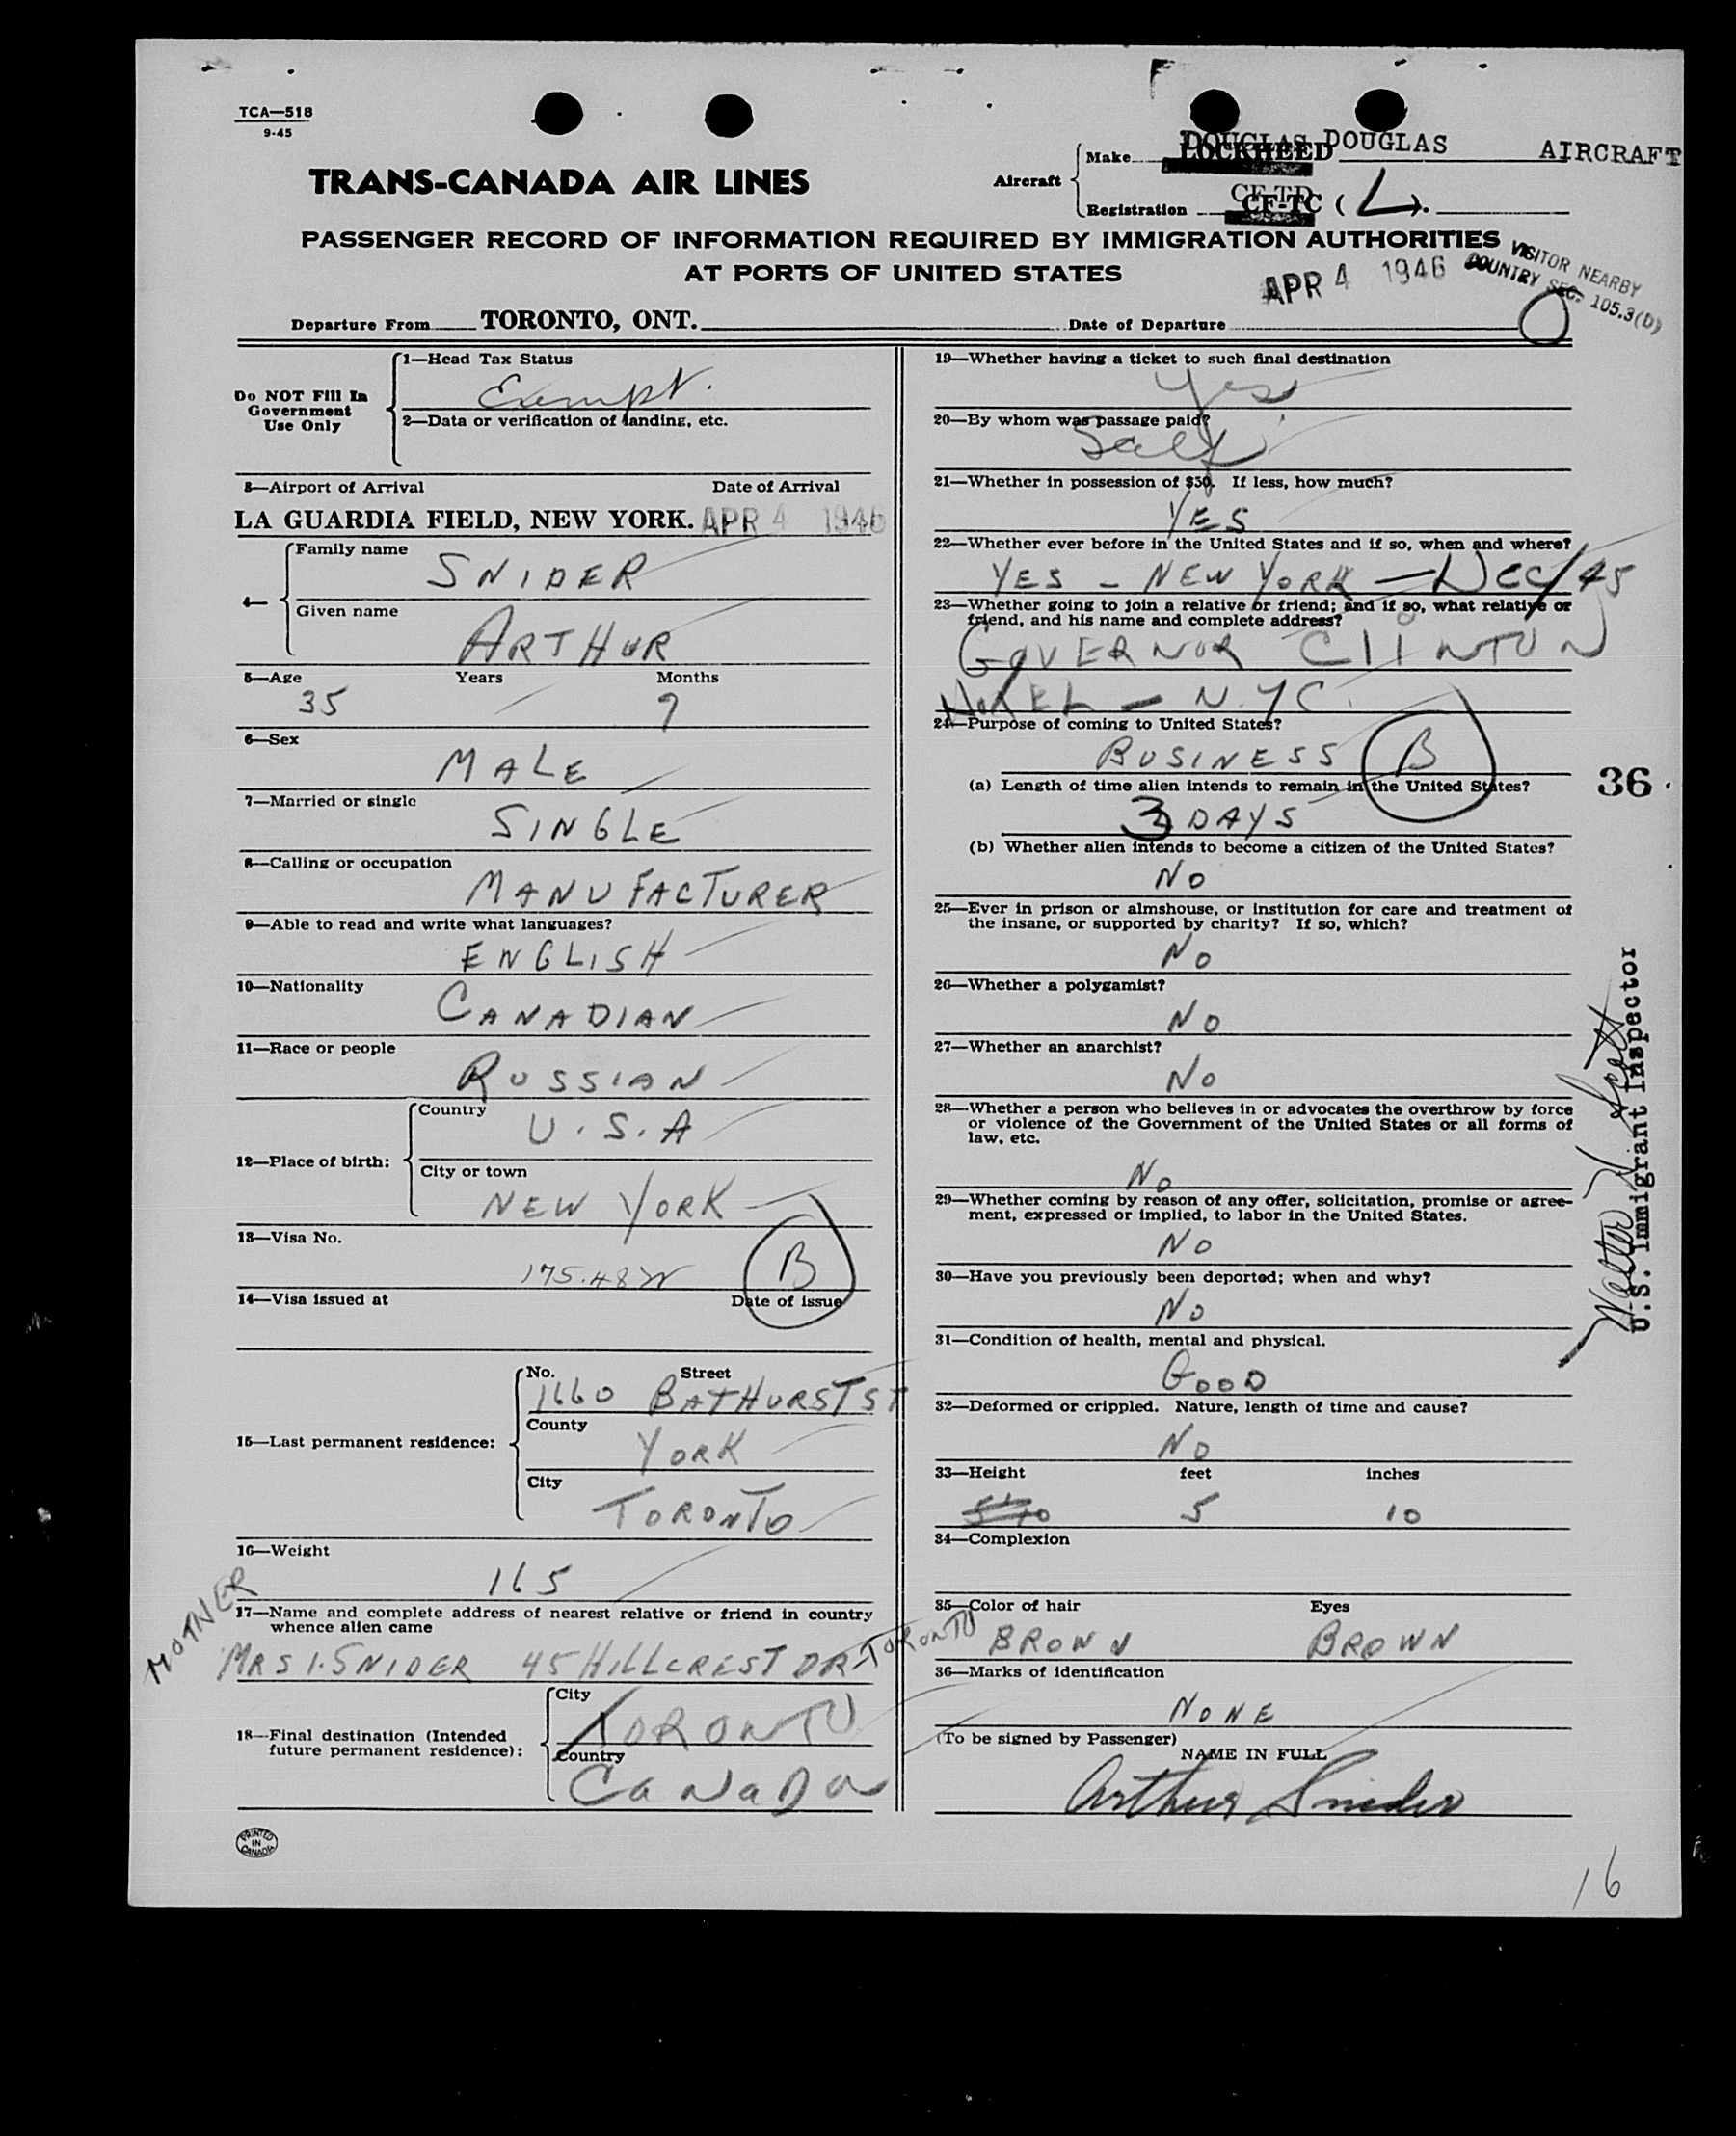 TCA—518
9-45
TRANS-CANADA AIR LINES
Aircraft
Make LOCKHEED DOUGLAS DOUGLAS AIRCRAFT
Registration CF-TC CF-TD (L).
PASSENGER RECORD OF INFORMATION REQUIRED BY IMMIGRATION AUTHORITIES
AT PORTS OF UNITED STATES
APR 4 1946
VISITOR NEARBY
COUNTRY SEC. 105.3(D)
Departure From TORONTO, ONT. Date of Departure
Do NOT Fill In
Government
Use Only
1—Head Tax Status
Exempt.
2—Data or verification of landing, etc.
3—Airport of Arrival Date of Arrival
LA GUARDIA FIELD, NEW YORK. APR 4 1946
4—
Family name
SNIDER
Given name
ARTHUR
5—Age Years Months
35 9
6—Sex
MALE
7—Married or single
SINGLE
8—Calling or occupation
MANUFACTURER
9—Able to read and write what languages?
ENGLISH
10—Nationality
CANADIAN
11—Race or people
RUSSIAN
12—Place of birth:
Country
U.S.A
City or town
NEW YORK
13—Visa No.
B
14—Visa issued at Date of issue
15—Last permanent residence:
No. Street
1660 BATHURST ST
County
YORK
City
TORONTO
16—Weight
165
17—Name and complete address of nearest relative or friend in country
whence alien came
MOTHER
MRS I. SNIDER 45 HILLCREST DR—TORONTO
18—Final destination (Intended
future permanent residence):
City
TORONTO
Country
CANADA
PRINTED
IN
CANADA
19—Whether having a ticket to such final destination
Yes
20—By whom was passage paid?
Self
21—Whether in possession of $50. If less, how much?
YES
22—Whether ever before in the United States and if so, when and where?
YES — NEW YORK — Dec/45
23—Whether going to join a relative or friend; and if so, what relative or
friend, and his name and complete address?
GOVERNOR CLINTON
HOTEL — N.Y.C.
24—Purpose of coming to United States?
BUSINESS B
(a) Length of time alien intends to remain in the United States?
3 DAYS
36
(b) Whether alien intends to become a citizen of the United States?
NO
25—Ever in prison or almshouse, or institution for care and treatment of
the insane, or supported by charity? If so, which?
NO
26—Whether a polygamist?
NO
27—Whether an anarchist?
NO
28—Whether a person who believes in or advocates the overthrow by force
or violence of the Government of the United States or all forms of
law, etc.
NO
29—Whether coming by reason of any offer, solicitation, promise or agree-
ment, expressed or implied, to labor in the United States.
NO
30—Have you previously been deported; when and why?
NO
31—Condition of health, mental and physical.
GOOD
32—Deformed or crippled. Nature, length of time and cause?
NO
33—Height feet inches
5'10 5 10
34—Complexion
35—Color of hair Eyes
BROWN BROWN
36—Marks of identification
NONE
(To be signed by Passenger)
NAME IN FULL
Arthur Snider
Walter Scott
U.S. Immigrant Inspector
16